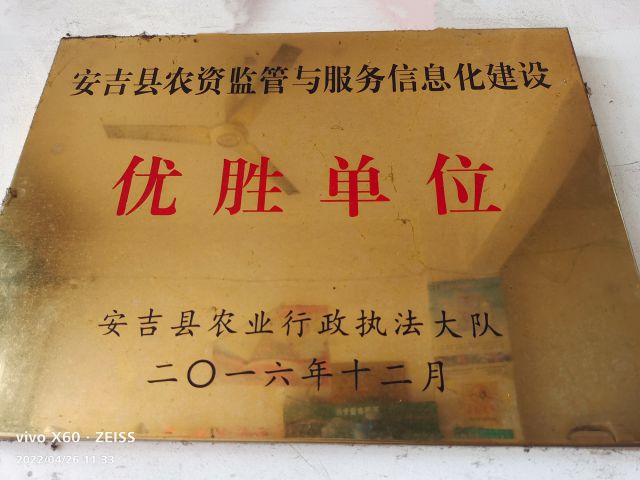 安吉县农资监管与服务信息化建设
优胜单位
安吉县农业行政执法大队
二〇一六年十二月
vivo X60 · ZEISS
2022/04/26 11:33